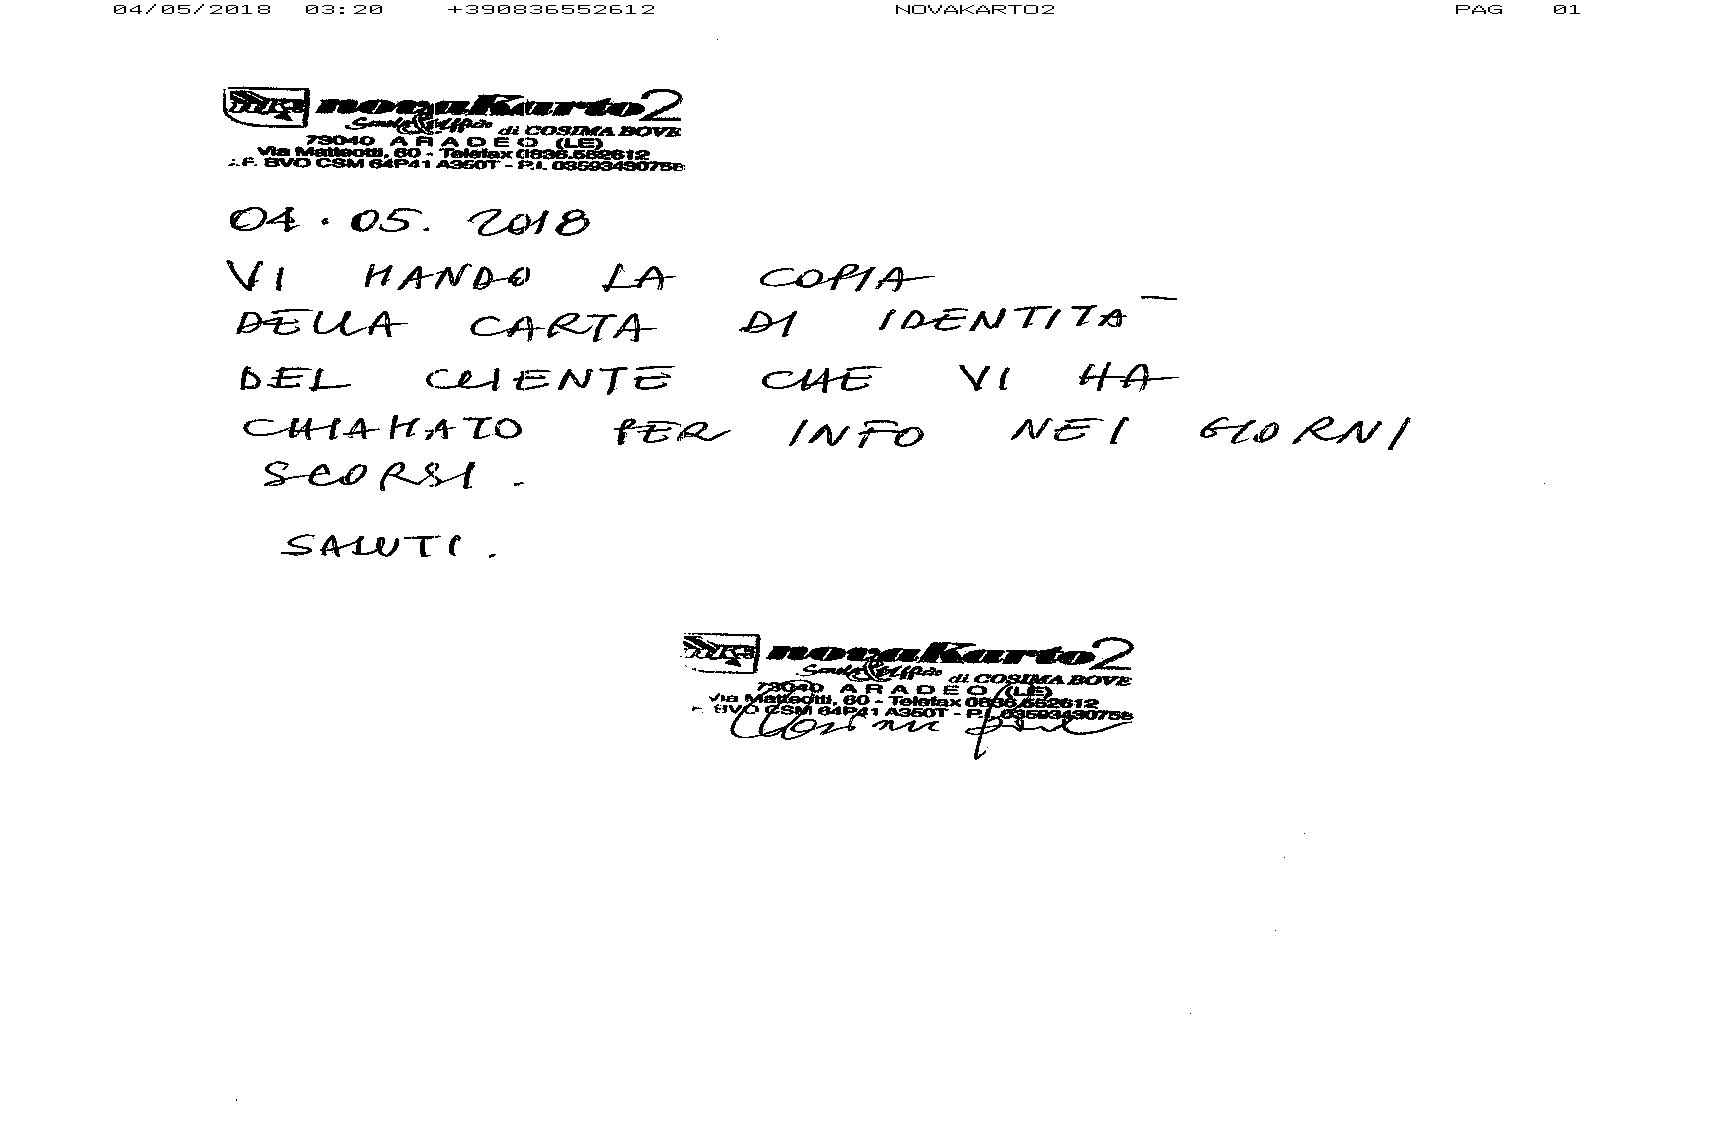 04/05/2018 03:20 +390836552612 NOVAKARTO2 PAG 01
novaKarto2
Scuola & Ufficio di COSIMA BOVE
73040 ARADEO (LE)
Via Matteotti, 60 - Telefax 0836.552612
.F. BVO CSM 64P41 A350T - P.I. 03593430758
04.05.2018
VI MANDO LA COPIA
DELLA CARTA DI IDENTITÀ
DEL CLIENTE CHE VI HA
CHIAMATO PER INFO NEI GIORNI
SCORSI.
SALUTI.
novaKarto2
Scuola & Ufficio di COSIMA BOVE
73040 ARADEO (LE)
Via Matteotti, 60 - Telefax 0836.552612
BVO CSM 64P41 A350T - P.I. 03593430758
Cosima Bove